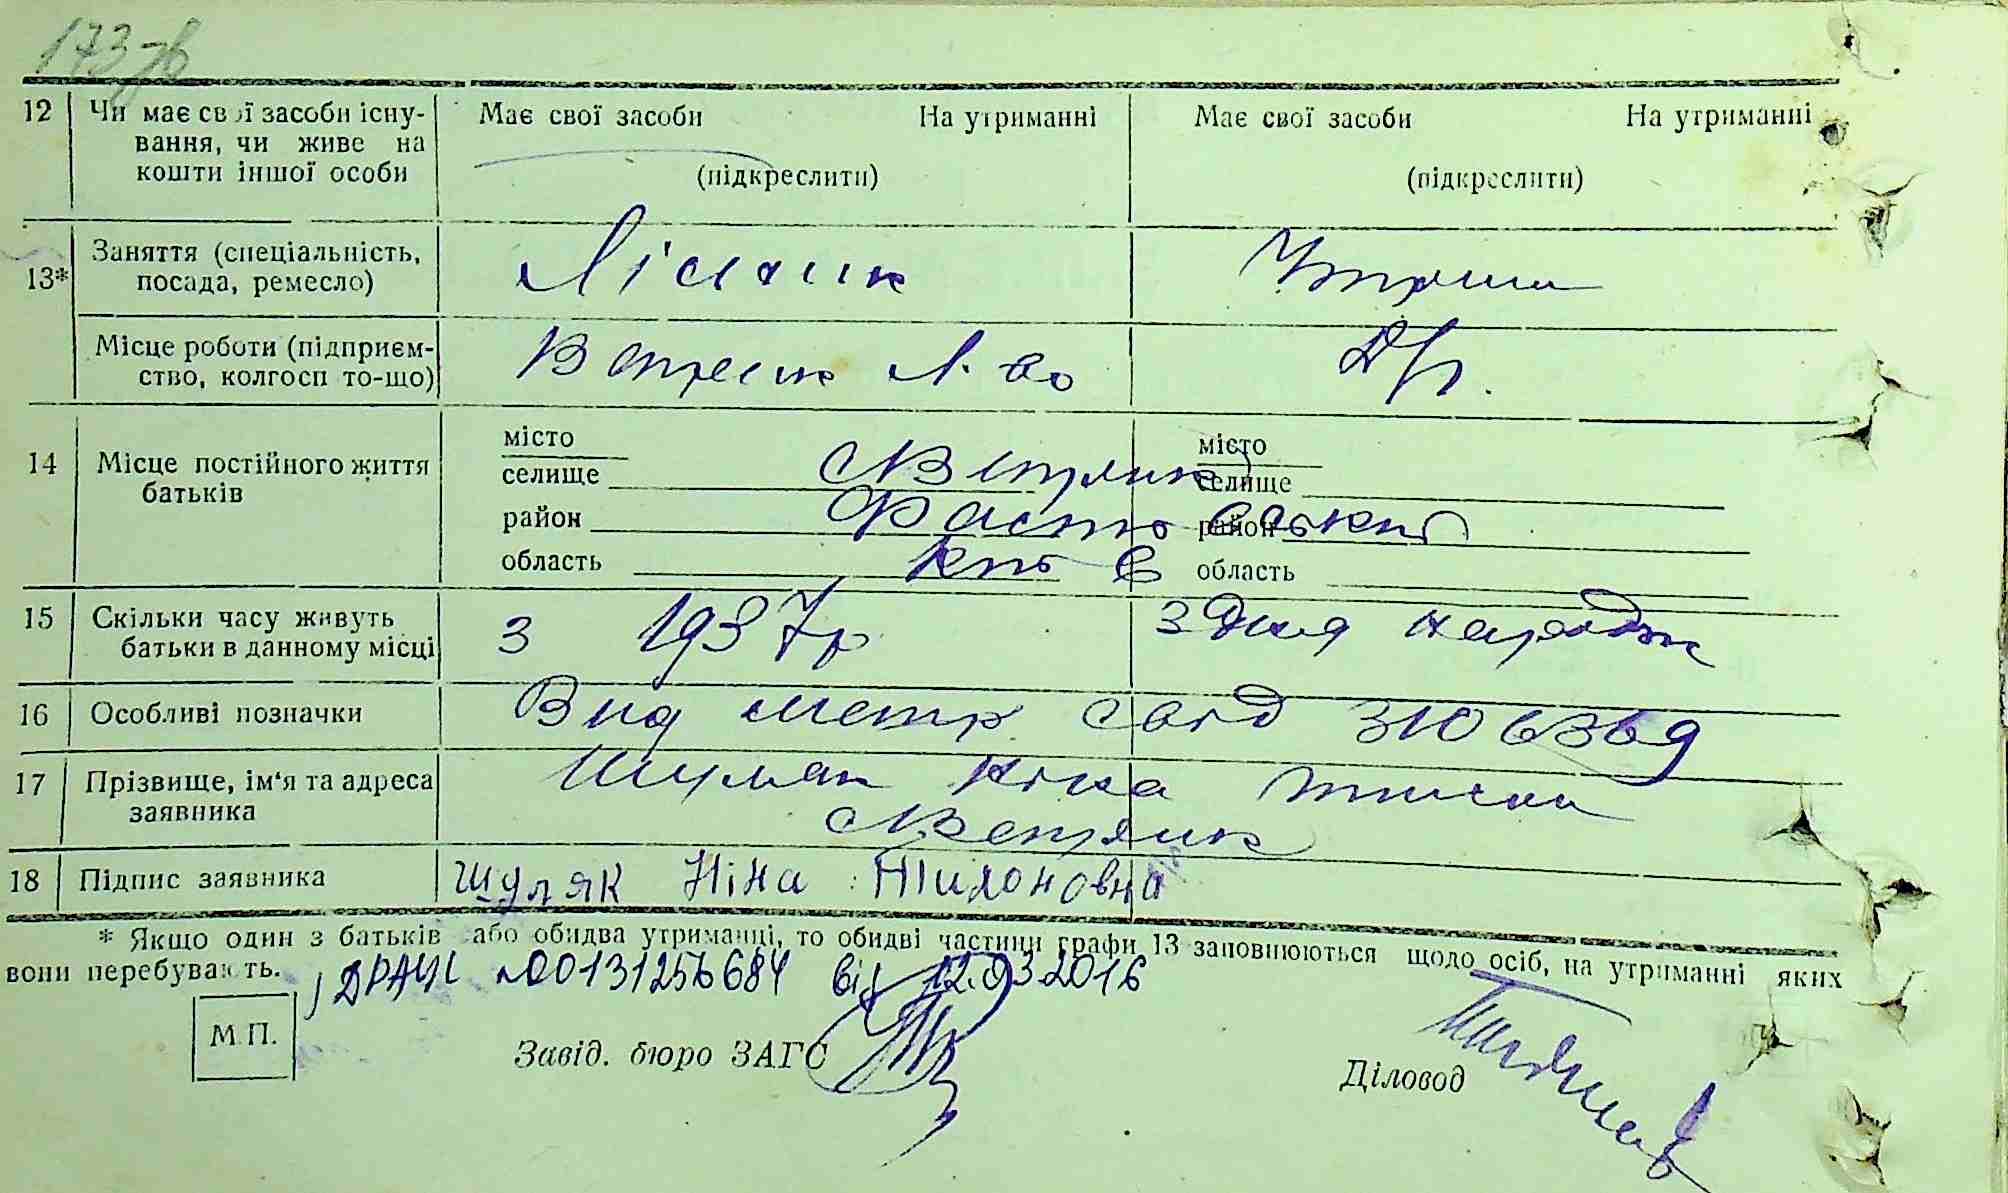 173 зв
12 Чи має свої засоби існу-
вання, чи живе на
кошти іншої особи
Має свої засоби На утриманні
(підкреслити)
Має свої засоби На утриманні
(підкреслити)
13* Заняття (спеціальність,
посада, ремесло)
Лісник
Утрим
Місце роботи (підприєм-
ство, колгосп то-що)
Ветресик л-во
14 Місце постійного життя
батьків
місто
селище
район
область
місто
селище
район
область
с Ветрик
Фастовський
Київ
15 Скільки часу живуть
батьки в данному місці
з 1937 р
з дня народж
16 Особливі позначки
Вид метр свід ЗЮ 636
17 Прізвище, ім'я та адреса
заявника
Шуляк Ніна
18 Підпис заявника
Шуляк Ніна Тихоновна
* Якщо один з батьків або обидва утриманці, то обидві частини графи 13 заповнюються щодо осіб, на утриманні яких
вони перебувають.
ДРАЦС №00131256684 від 12.03.2016
М.П.
Завід. бюро ЗАГС
Діловод